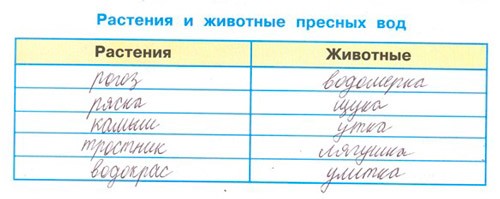 Растения и животные пресных вод
Растения Животные
рогоз водомерка
ряска щука
камыш утка
тростник лягушка
водокрас улитка